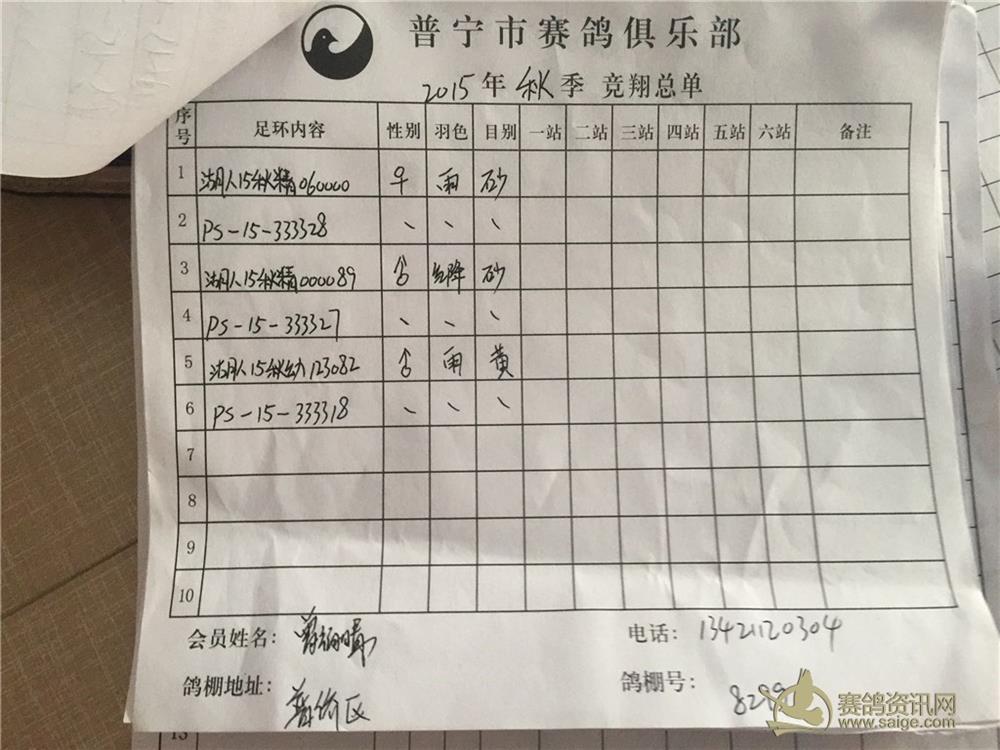 普宁市赛鸽俱乐部
2015年 秋季 竞翔总单
序号 足环内容 性别 羽色 目别 一站 二站 三站 四站 五站 六站 备注
1 湖人15秋精060000 ♀ 雨 砂
2 PS-15-333328 、 、 、
3 湖人15秋精000089 ♂ 红绛 砂
4 PS-15-333327 、 、 、
5 湖人15秋幼123082 ♂ 雨 黄
6 PS-15-333318 、 、 、
7
8
9
10
会员姓名: 电话: 13421120304
鸽棚地址: 区 鸽棚号: 829
赛鸽资讯网
www.saige.com
13